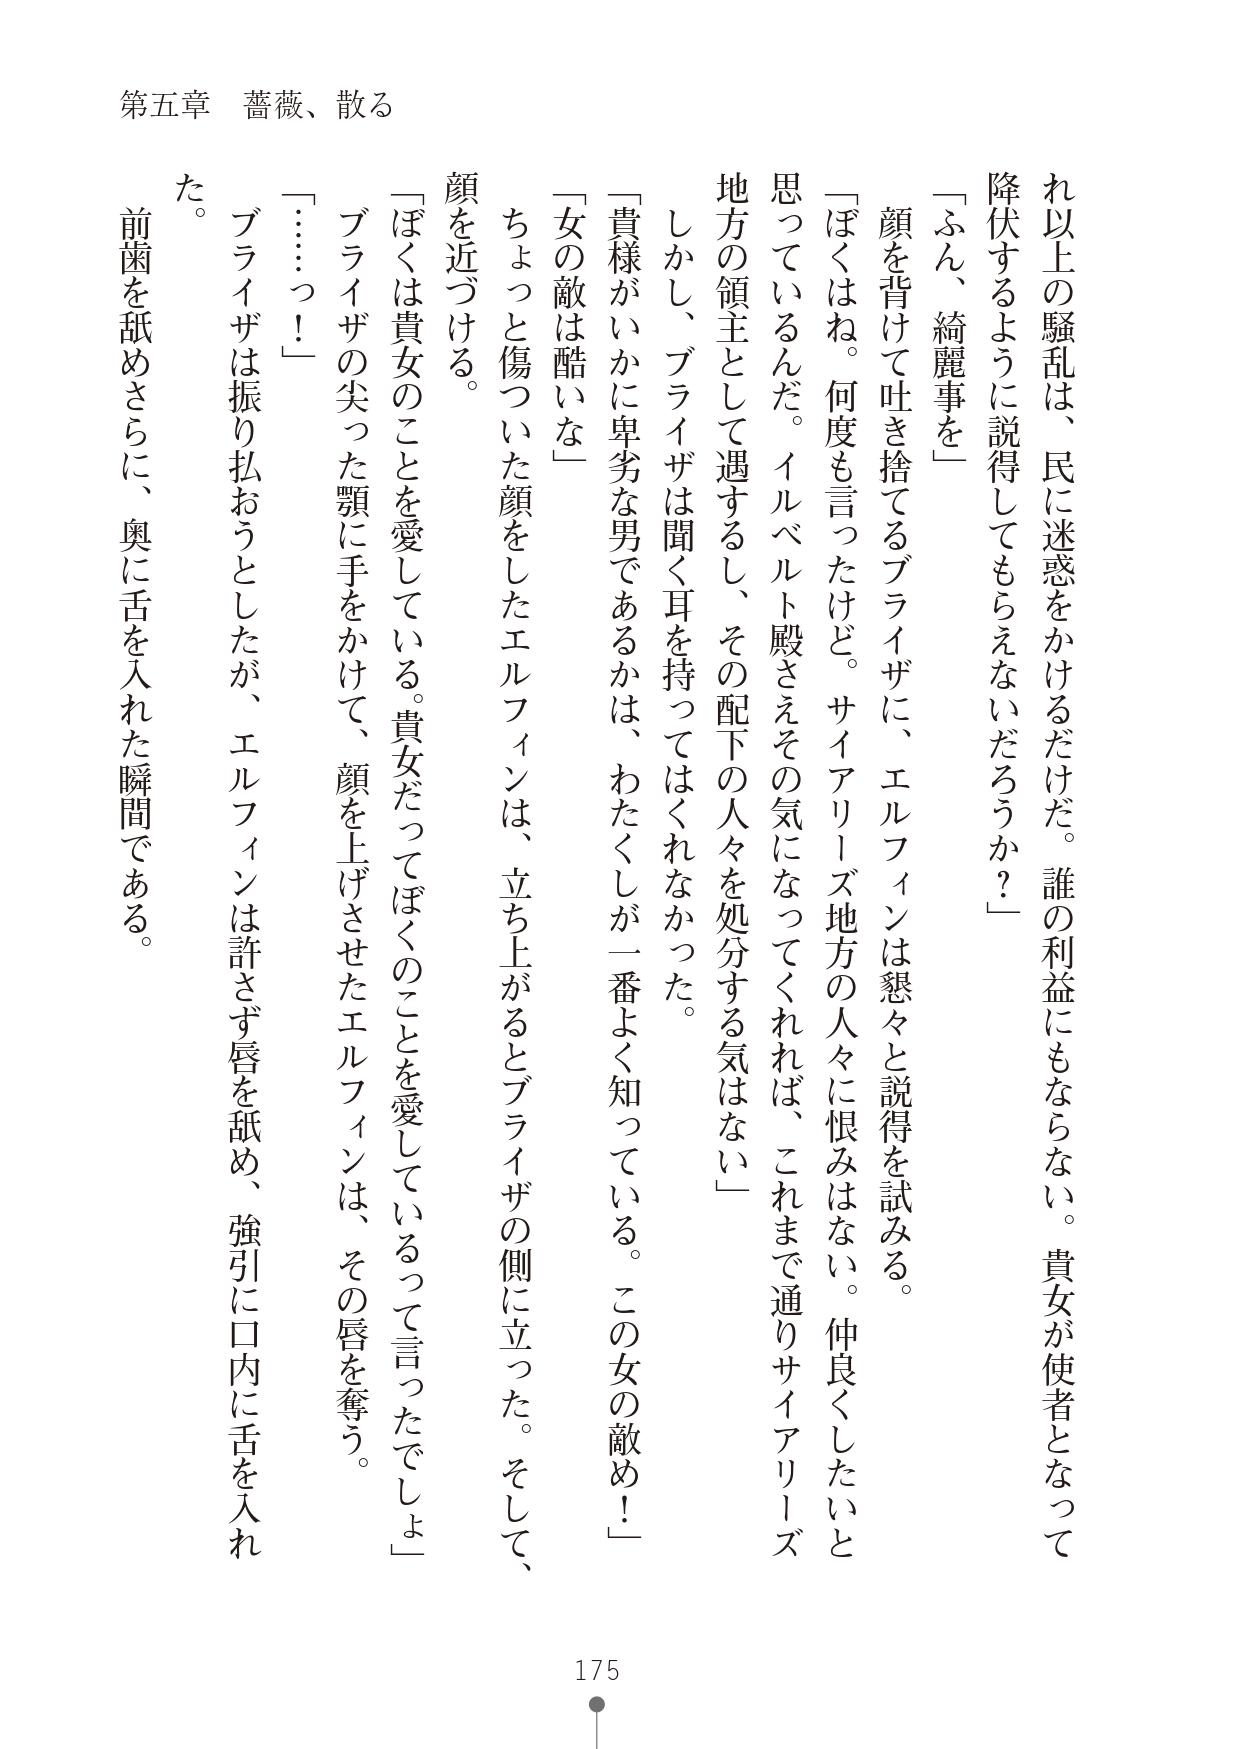 第五章　薔薇、散る
れ以上の騒乱は、民に迷惑をかけるだけだ。誰の利益にもならない。貴女が使者となって
降伏するように説得してもらえないだろうか？」
「ふん、綺麗事を」
　顔を背けて吐き捨てるブライザに、エルフィンは懇々と説得を試みる。
「ぼくはね。何度も言ったけど。サイアリーズ地方の人々に恨みはない。仲良くしたいと
思っているんだ。イルベルト殿さえその気になってくれれば、これまで通りサイアリーズ
地方の領主として遇するし、その配下の人々を処分する気はない」
　しかし、ブライザは聞く耳を持ってはくれなかった。
「貴様がいかに卑劣な男であるかは、わたくしが一番よく知っている。この女の敵め！」
「女の敵は酷いな」
　ちょっと傷ついた顔をしたエルフィンは、立ち上がるとブライザの側に立った。そして、
顔を近づける。
「ぼくは貴女のことを愛している。貴女だってぼくのことを愛しているって言ったでしょ」
　ブライザの尖った顎に手をかけて、顔を上げさせたエルフィンは、その唇を奪う。
「……っ！」
　ブライザは振り払おうとしたが、エルフィンは許さず唇を舐め、強引に口内に舌を入れ
た。
　前歯を舐めさらに、奥に舌を入れた瞬間である。
175